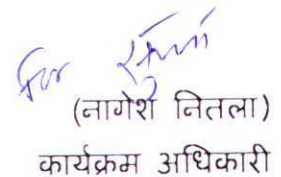 for
(नागेश नितला)
कार्यक्रम अधिकारी